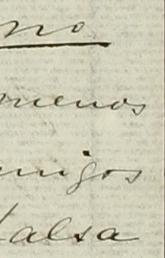 no
menos
migos
falsa